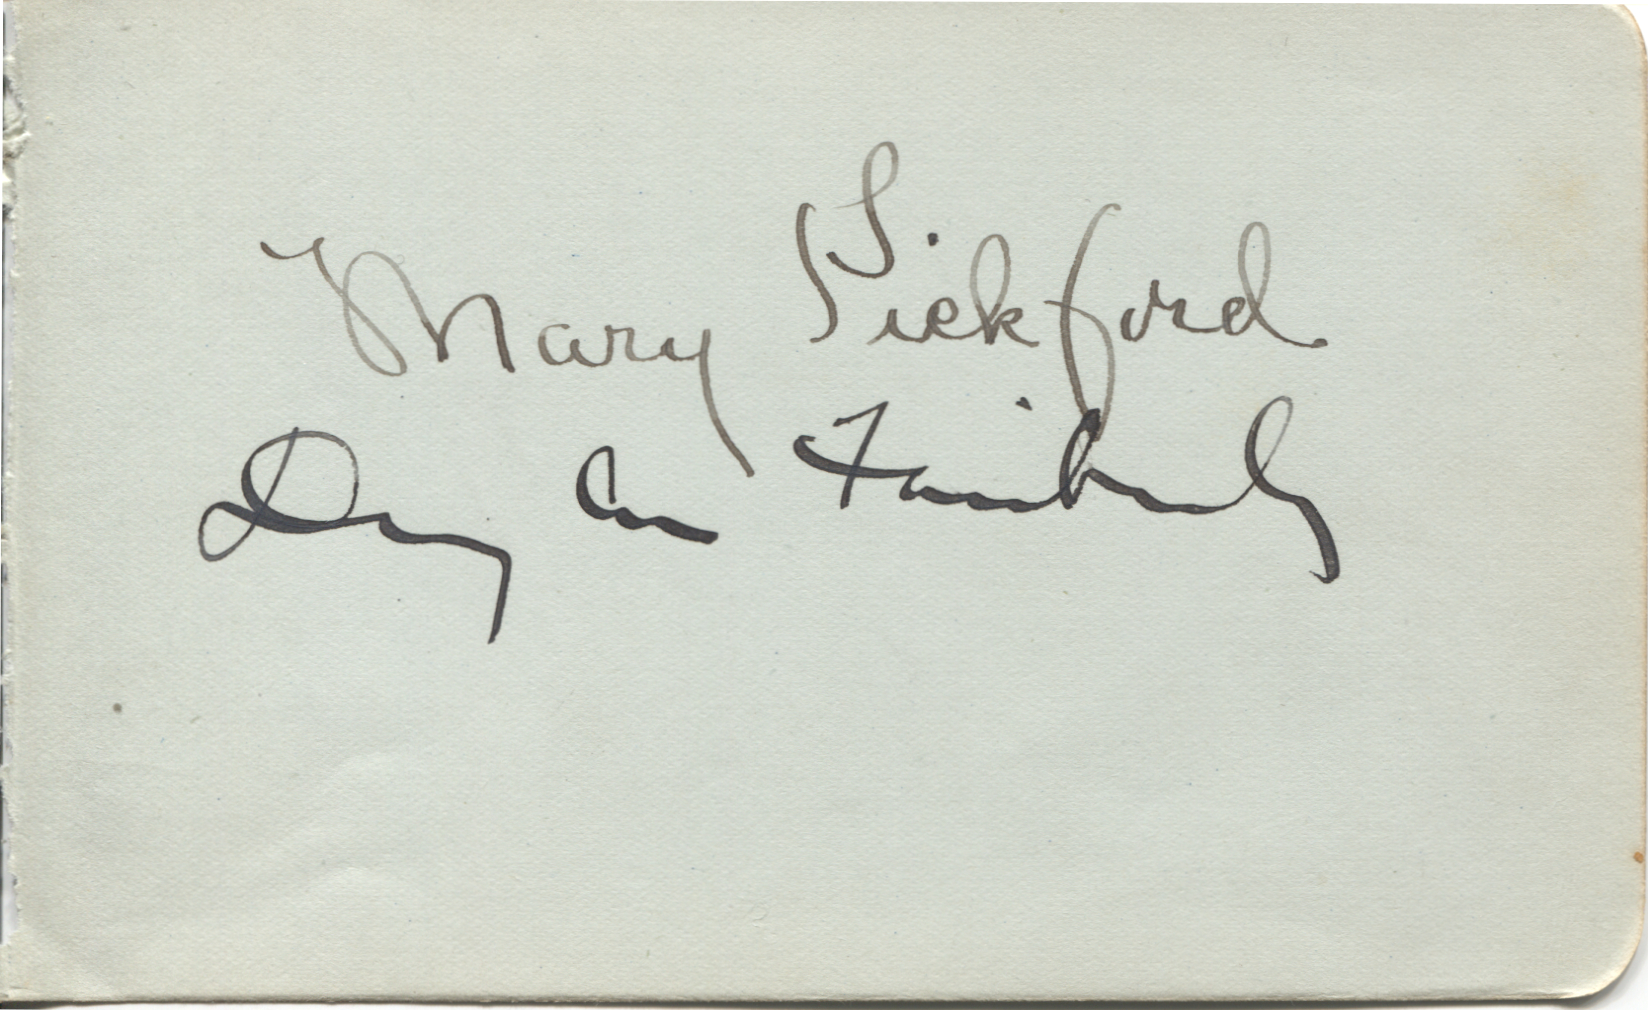 Mary Pickford
Douglas Fairbanks